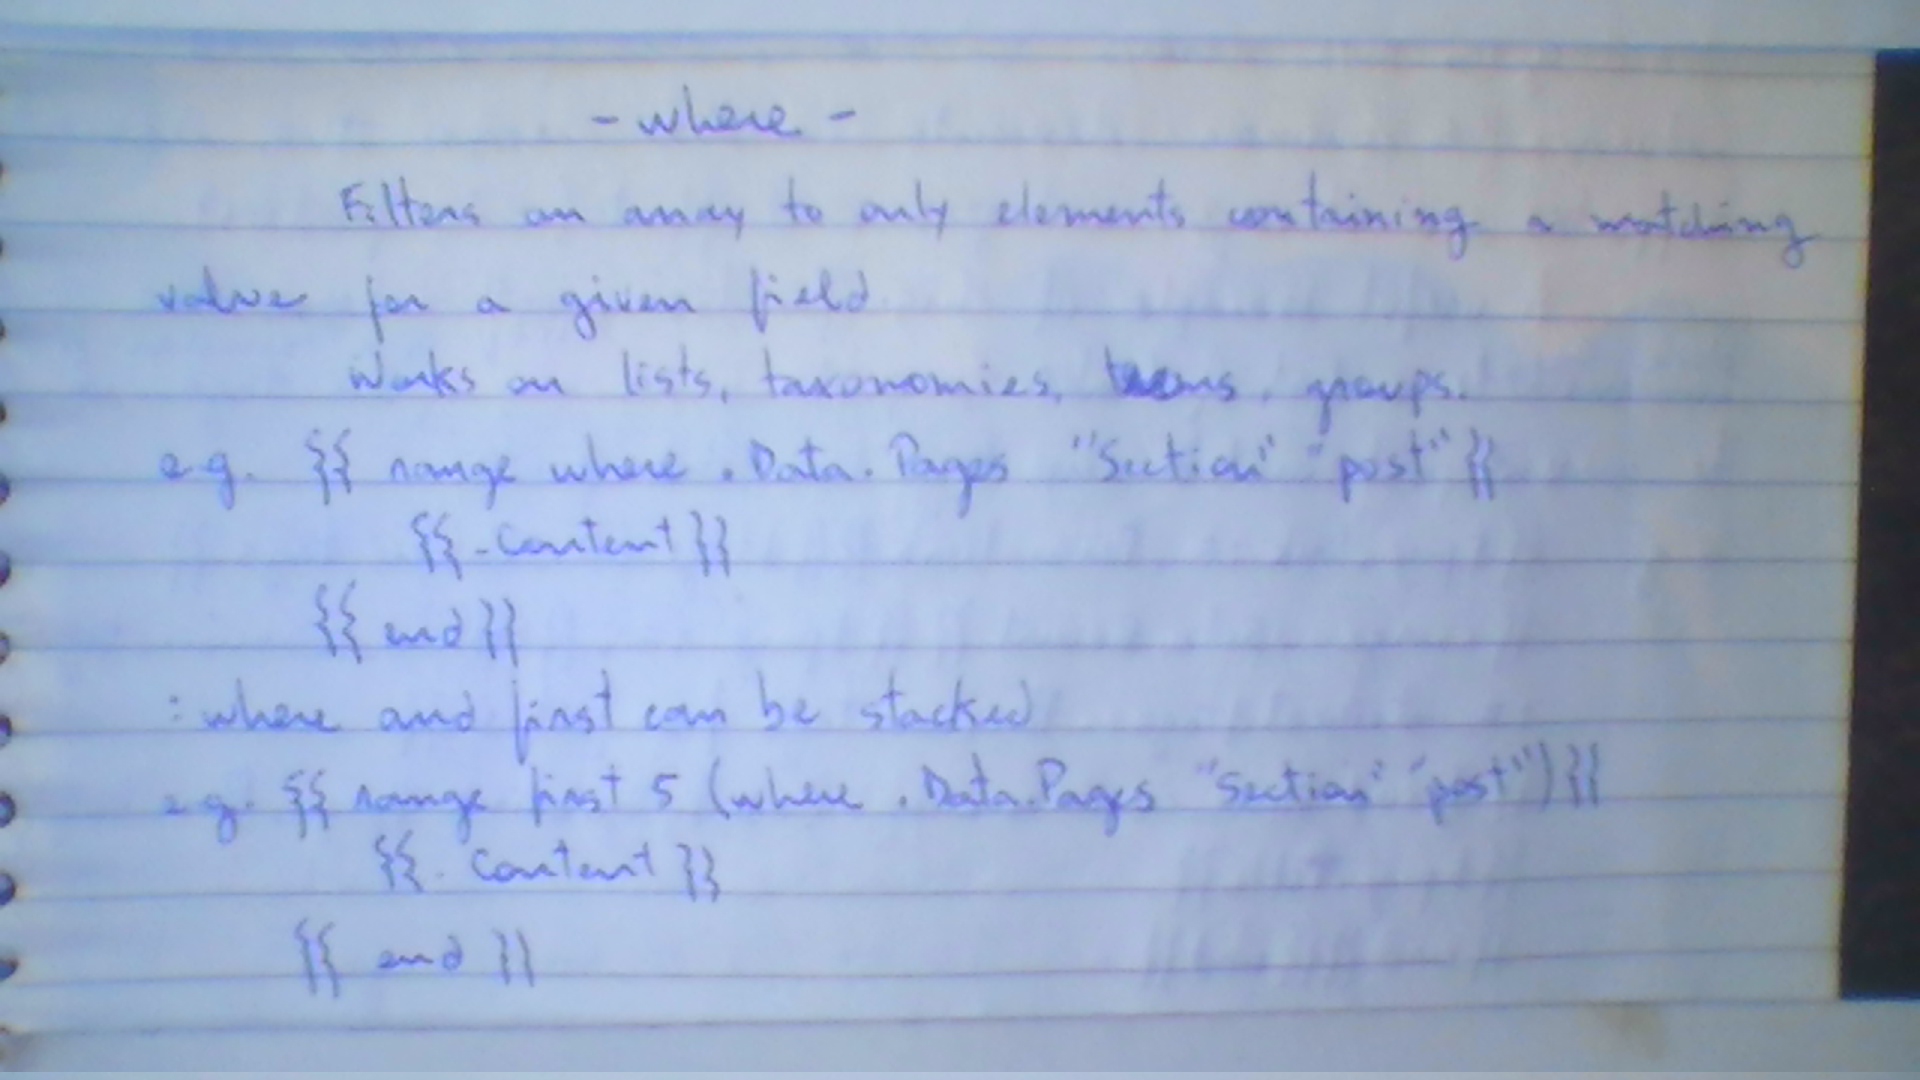 - where -
Filters an array to only elements containing a matching
value for a given field
Works on lists, taxonomies, terms, groups.
e.g. {{ range where .Data.Pages "Section" "post" }}
{{ .Content }}
{{ end }}
: where and first can be stacked
e.g. {{ range first 5 (where .Data.Pages "Section" "post") }}
{{ .Content }}
{{ end }}